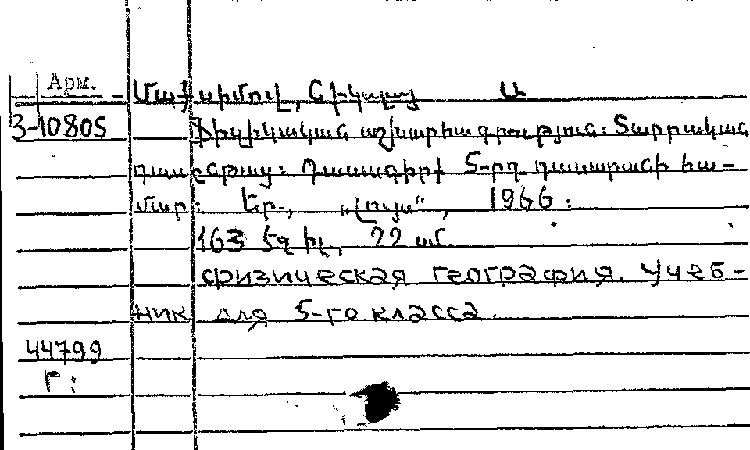 Арм.
Մաքսիմով, Նիկոլայ Ա
3-10805 Ֆիզիկական աշխարհագրություն: Տարրական
դասընթաց: Դասագիրք 5-րդ դասարանի հա-
մար: Եր., „Լույս“, 1966:
163 էջ իլ., 22 սմ.
Физическая география. Учеб-
ник для 5-го класса
44799
Г: